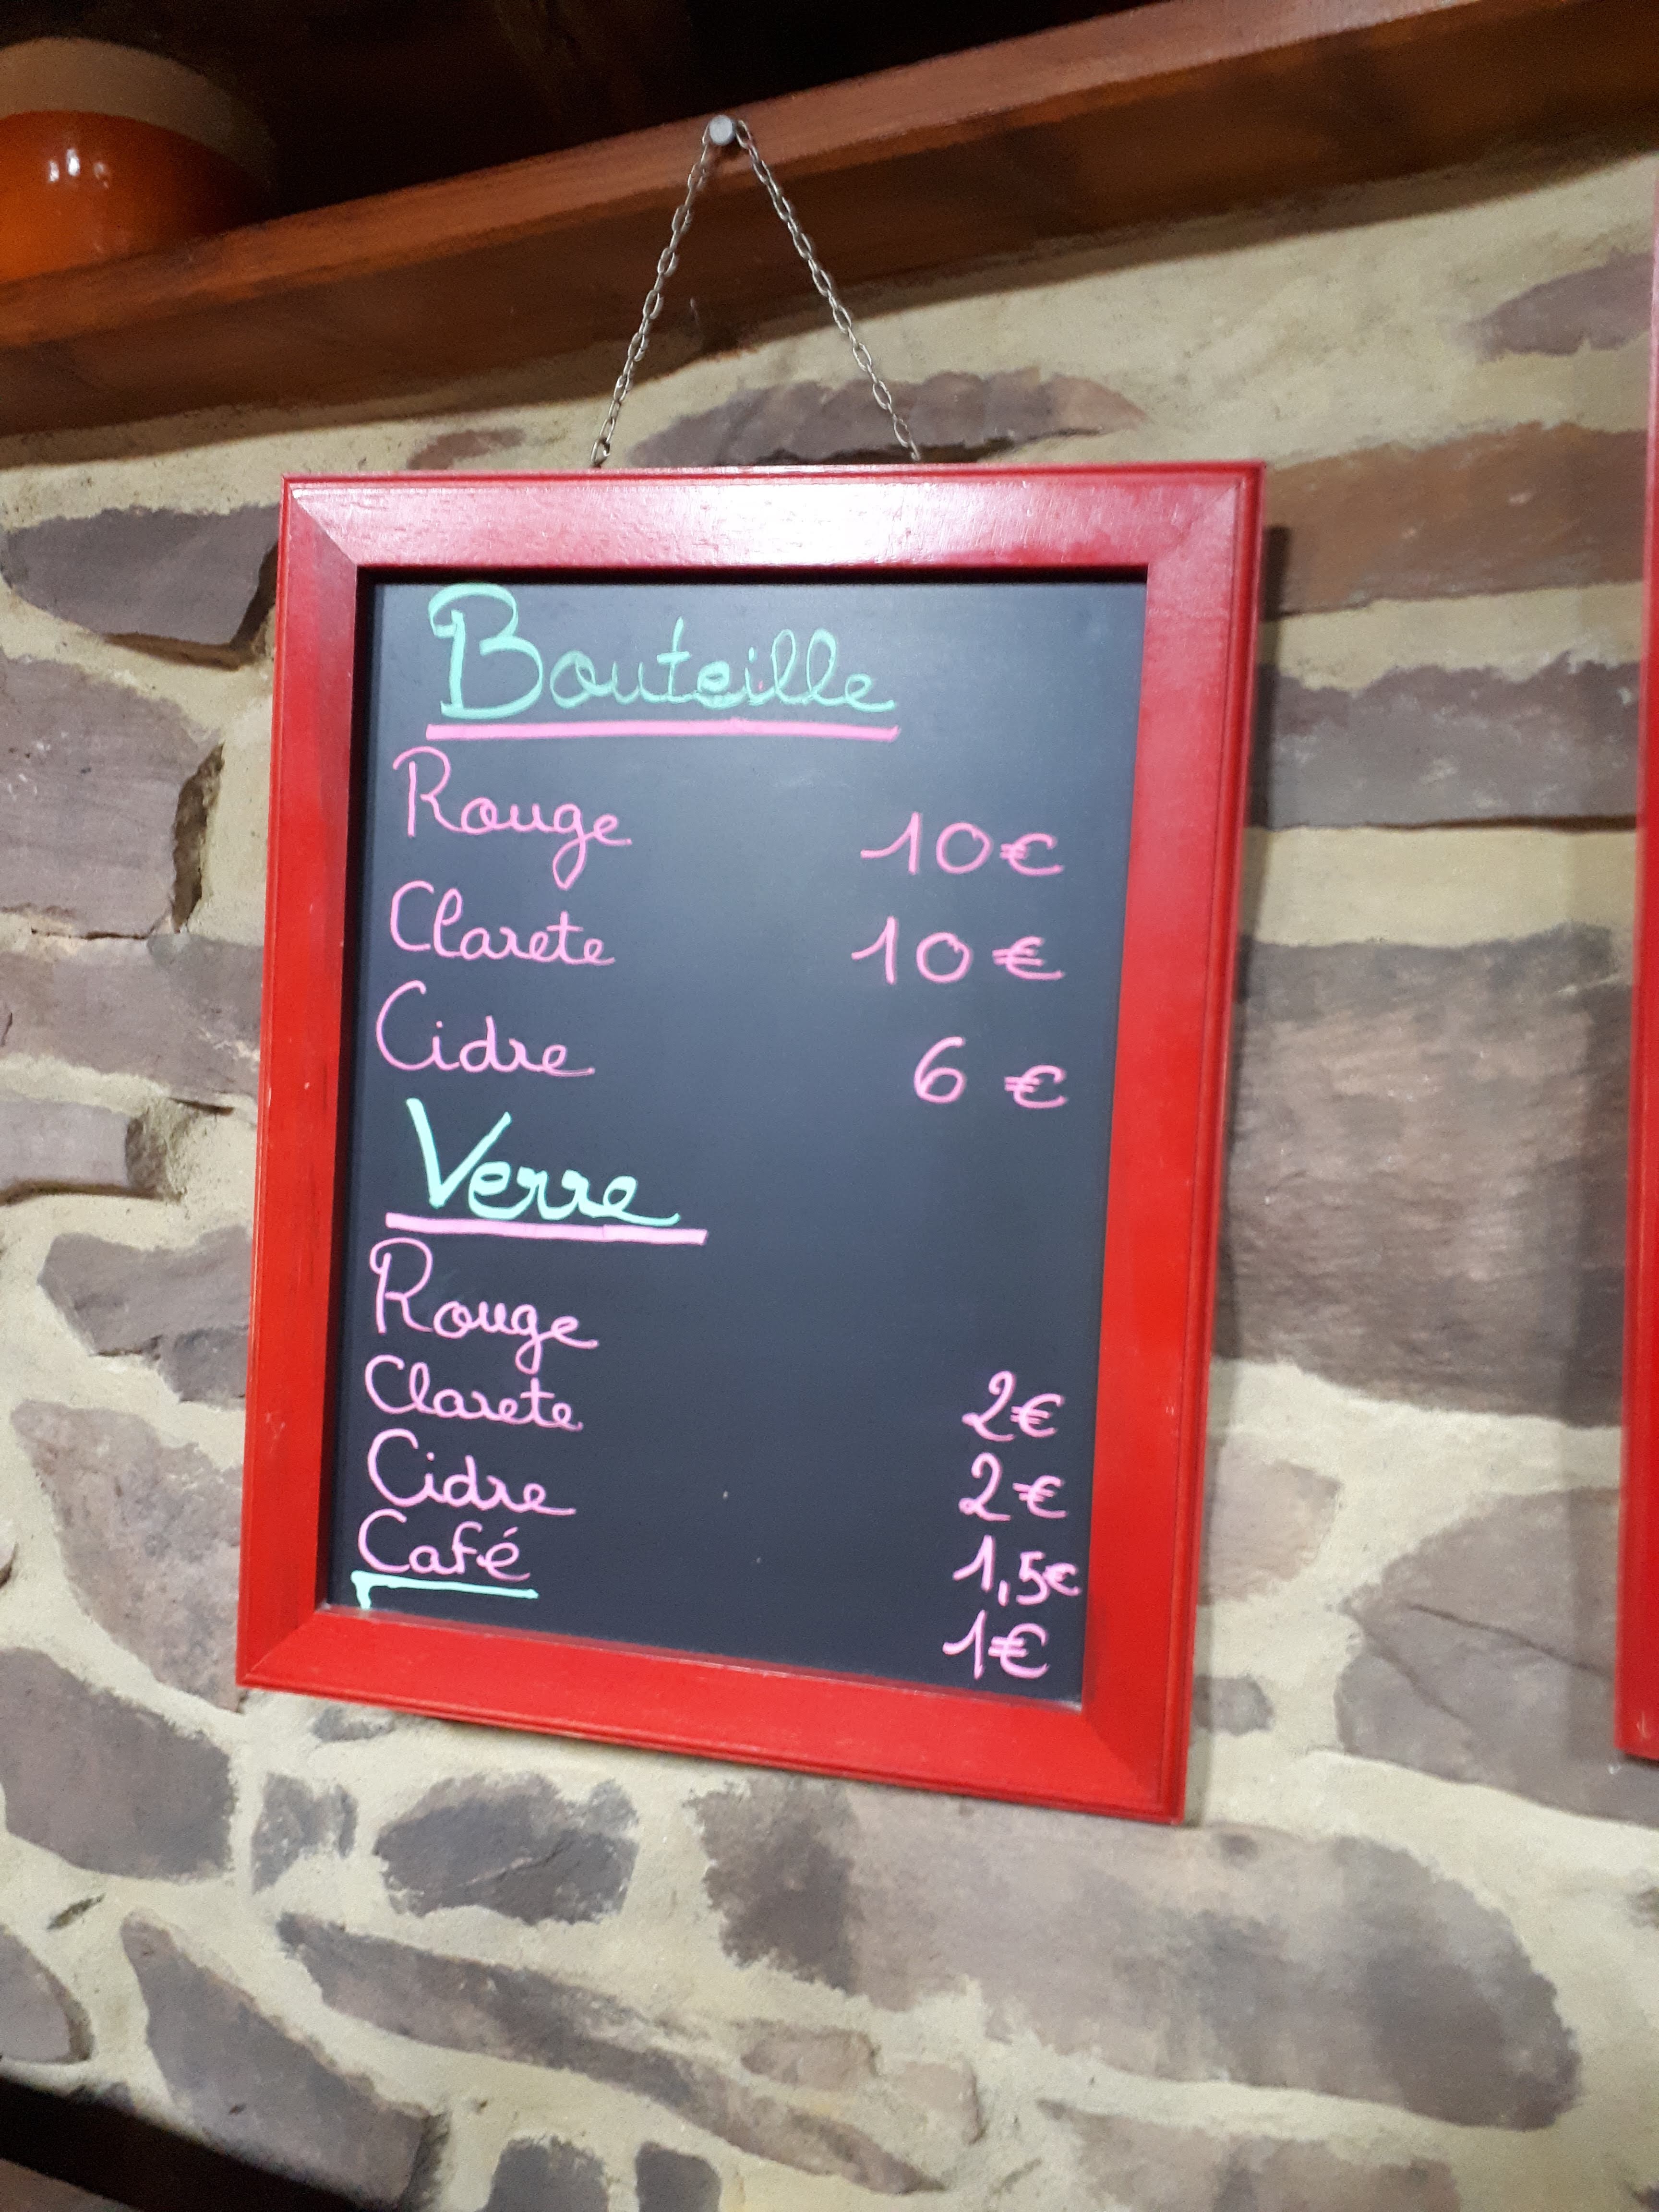 Bouteille
Rouge 10€
Clarete 10€
Cidre 6€
Verre
Rouge 2€
Clarete 2€
Cidre 1,5€
Café 1€